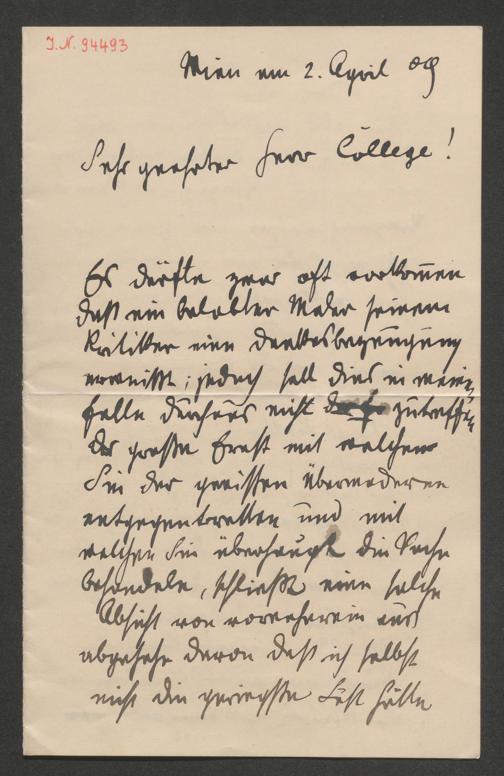 J.N. 94493
Wien am 2. April 09
Sehr geehrter Herr College!
Es dürfte zwar oft vorkommen
daß ein belobter Maler seinem
Kritiker eine Dankesbezeugung
erweißt; jedoch soll dies in meinem
falle durchaus nicht zutreffen
der große Ernst mit welchem
Sie der gewissen Übermoderne
entgegentretten und mit
welchen Sie überhaupt die Sache
behandeln, schließt eine solche
Absicht von vorneherein aus
abgesehe davon daß ich selbst
nicht die geringste Lust hätte